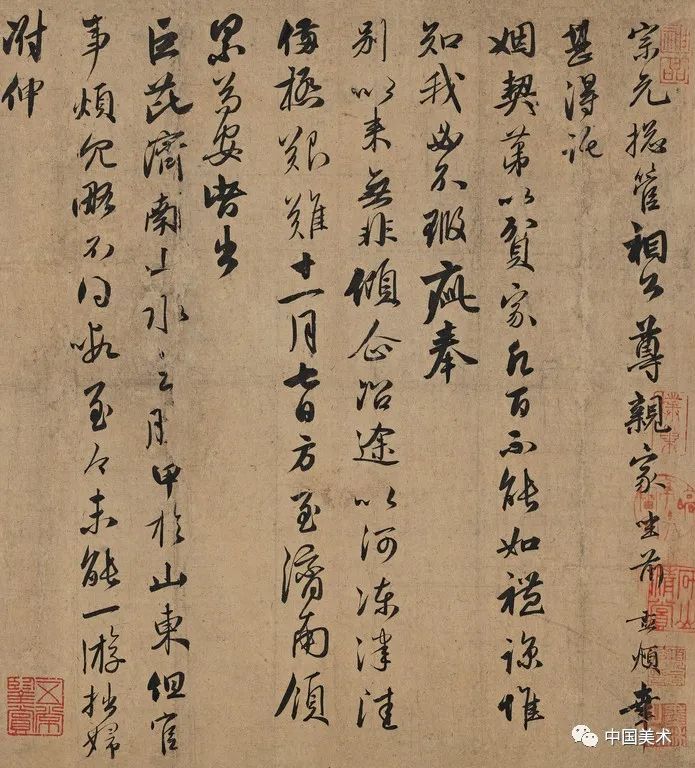 宗元揔管相公尊親家坐前孟頫幸
甚得託
姻契第以貧家凡百不能如禮諒惟
知我必不瑕疵奉
別以來無非傾企沿途以河凍津
備極艱難十一月七日方至濟南領
累苟安皆出
巨芘濟南山水之勝甲於山東但官
事煩冗略不得暇至今未能一游拙婦
附伸
中国美术